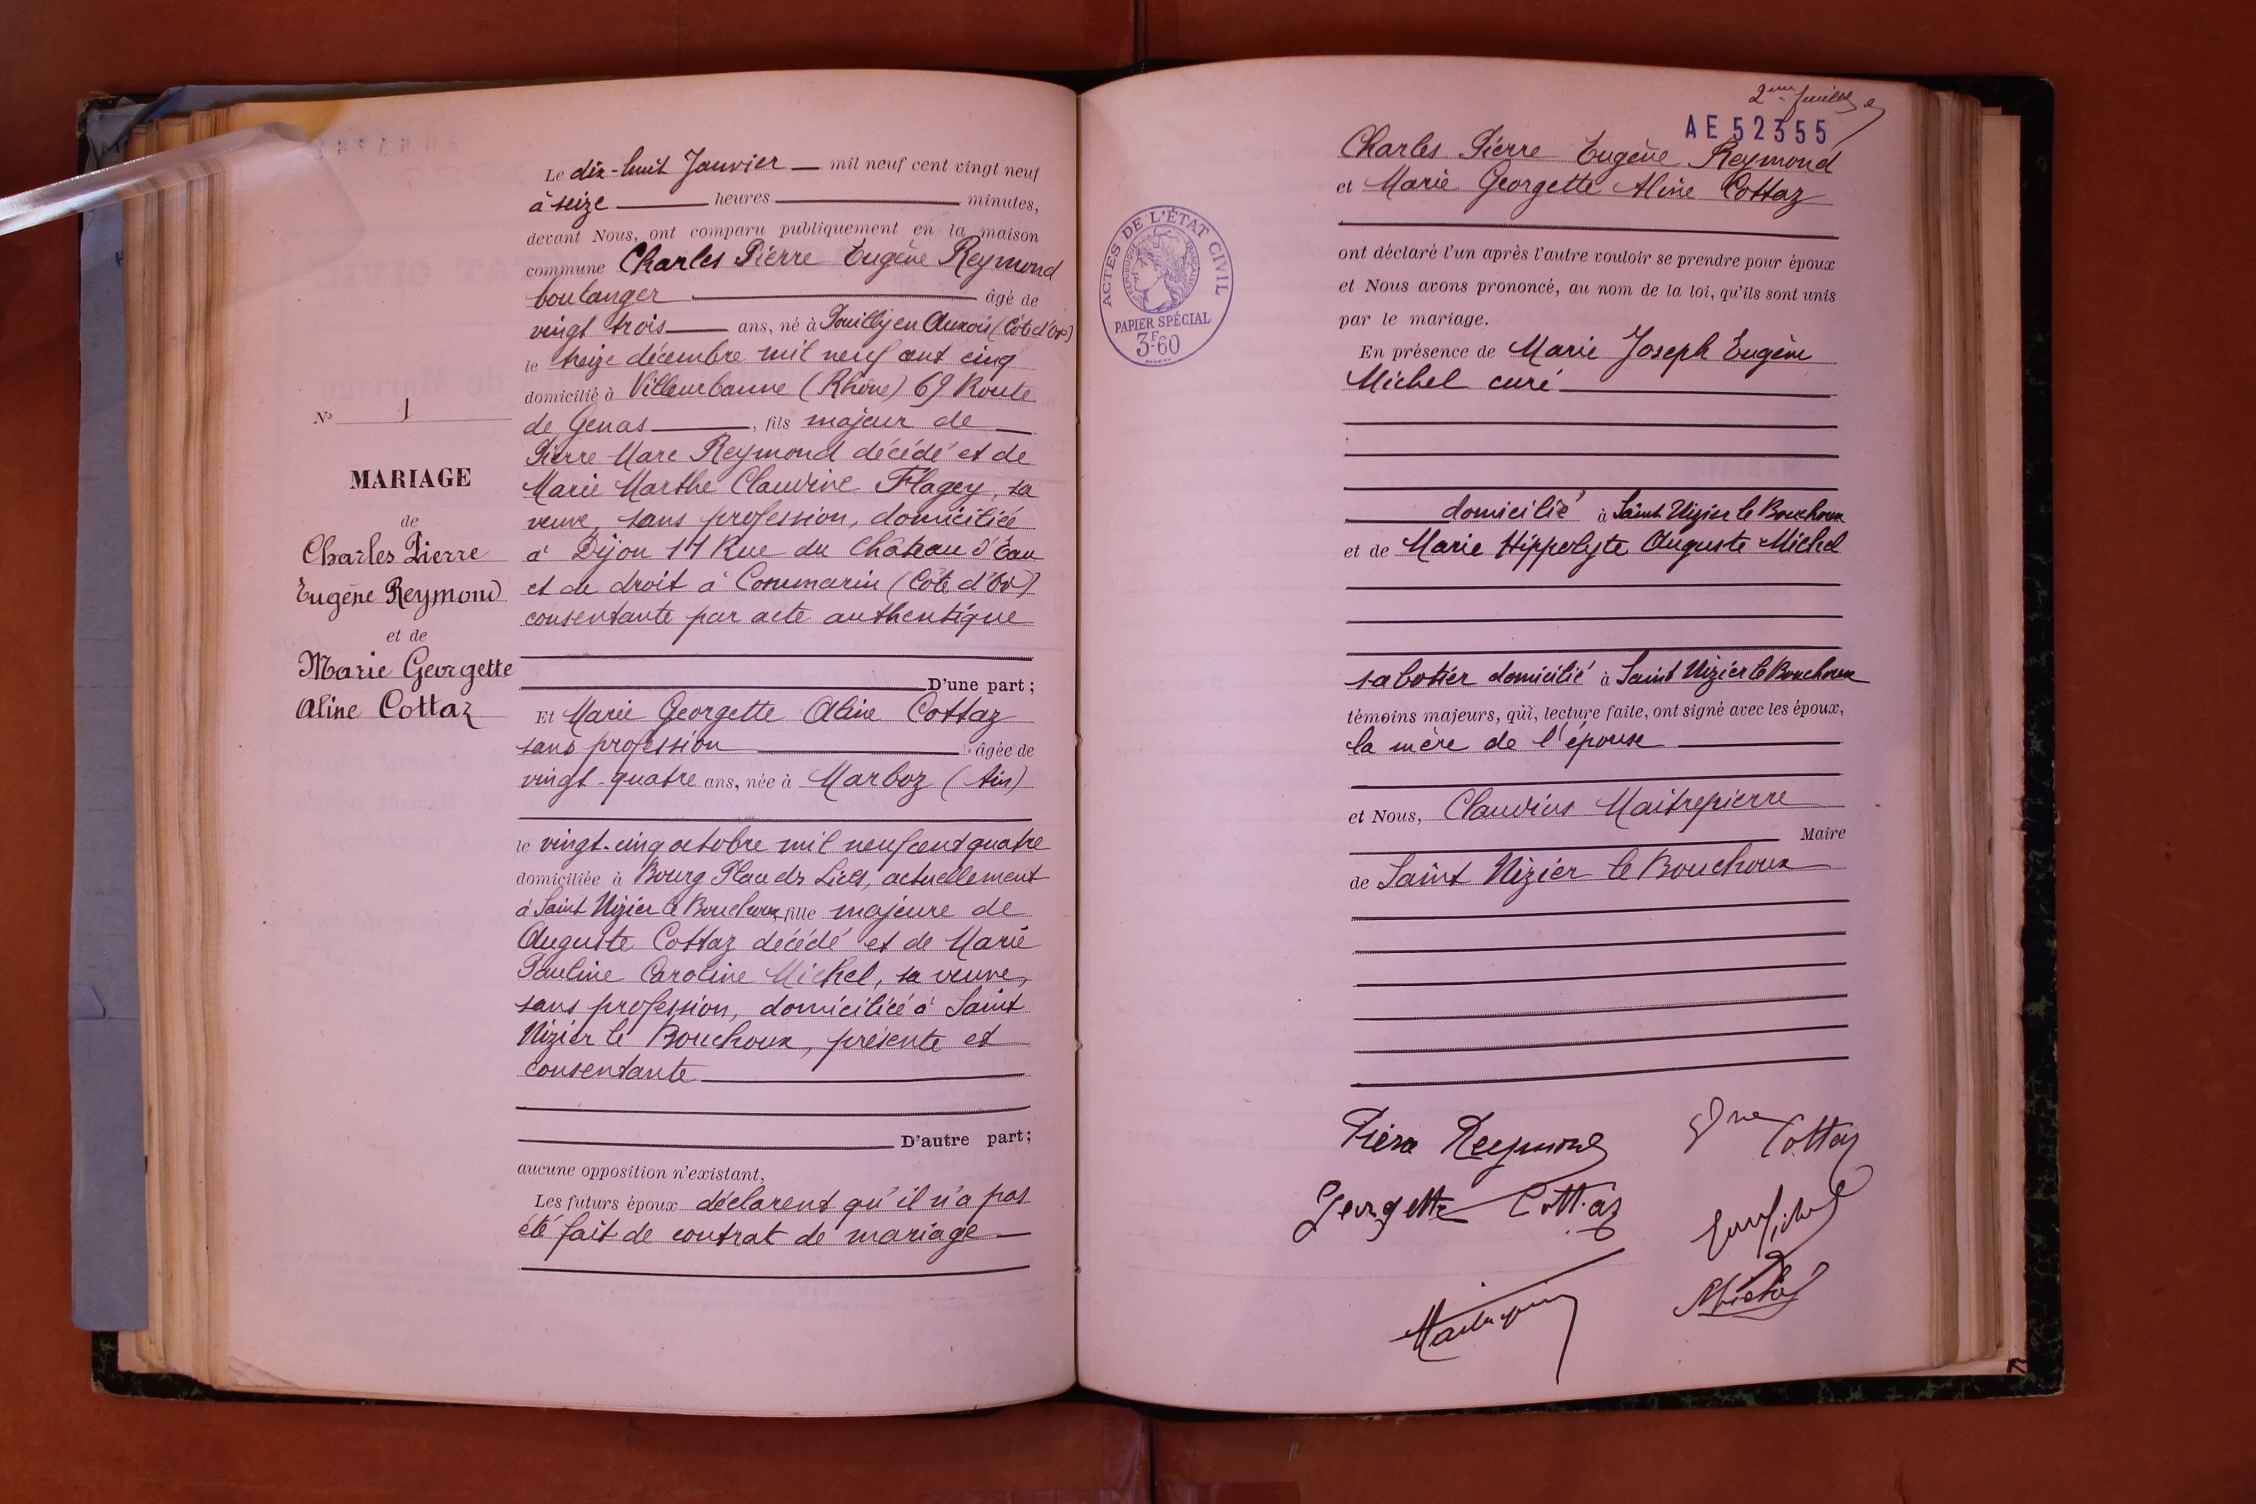 N° 1
MARIAGE
de
Charles Pierre
Eugène Reymond
et de
Marie Georgette
Aline Cottaz
Le dix-huit Janvier mil neuf cent vingt neuf
à seize heures minutes,
devant Nous, ont comparu publiquement en la maison
commune Charles Pierre Eugène Reymond
boulanger âgé de
vingt trois ans, né à Pouilly en Auxois (Côte d'Or)
le treize décembre mil neuf cent cinq
domicilié à Villeurbanne (Rhône) 69 Route
de Genas, fils majeur de
Pierre Marc Reymond décédé et de
Marie Marthe Claudine Flagey, sa
veuve, sans profession, domiciliée
à Dijon 14 Rue du Château d'Eau
et de droit à Commarin (Côte d'Or)
consentante par acte authentique
D'une part;
Et Marie Georgette Aline Cottaz
sans profession âgée de
vingt-quatre ans, née à Marboz (Ain)
le vingt-cinq octobre mil neuf cent quatre
domiciliée à Bourg Place des Lices, actuellement
à Saint Nizier le Bouchoux, fille majeure de
Auguste Cottaz décédé et de Marie
Pauline Caroline Michel, sa veuve,
sans profession, domiciliée à Saint
Nizier le Bouchoux, présente et
consentante
D'autre part;
aucune opposition n'existant,
Les futurs époux déclarent qu'il n'a pas
été fait de contrat de mariage
2me feuille
AE 52355
Charles Pierre Eugène Reymond
et Marie Georgette Aline Cottaz
ACTES DE L'ÉTAT CIVIL
RÉPUBLIQUE FRANÇAISE
PAPIER SPÉCIAL
3F60
ont déclaré l'un après l'autre vouloir se prendre pour époux
et Nous avons prononcé, au nom de la loi, qu'ils sont unis
par le mariage.
En présence de Marie Joseph Eugène
Michel curé
domicilié à Saint Nizier le Bouchoux
et de Marie Hippolyte Auguste Michel
sabotier domicilié à Saint Nizier le Bouchoux
témoins majeurs, qui, lecture faite, ont signé avec les époux,
la mère de l'épouse
et Nous, Claudius Maitrepierre
Maire
de Saint Nizier le Bouchoux
Pierre Reymond
Cottaz
Georgette Cottaz
Michel